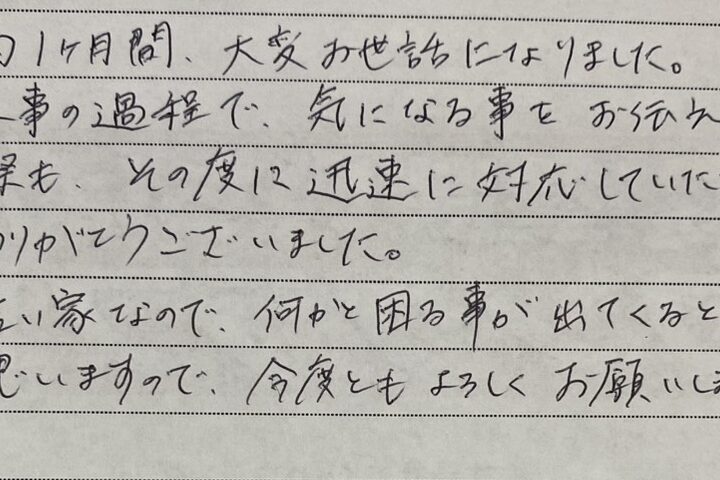 1ヶ月間、大変お世話になりました。
事の過程で、気になる事をお伝え
も、その度に迅速に対応していた
りがとうございました。
い家なので、何かと困る事が出てくると
思いますので、今度ともよろしくお願いしま